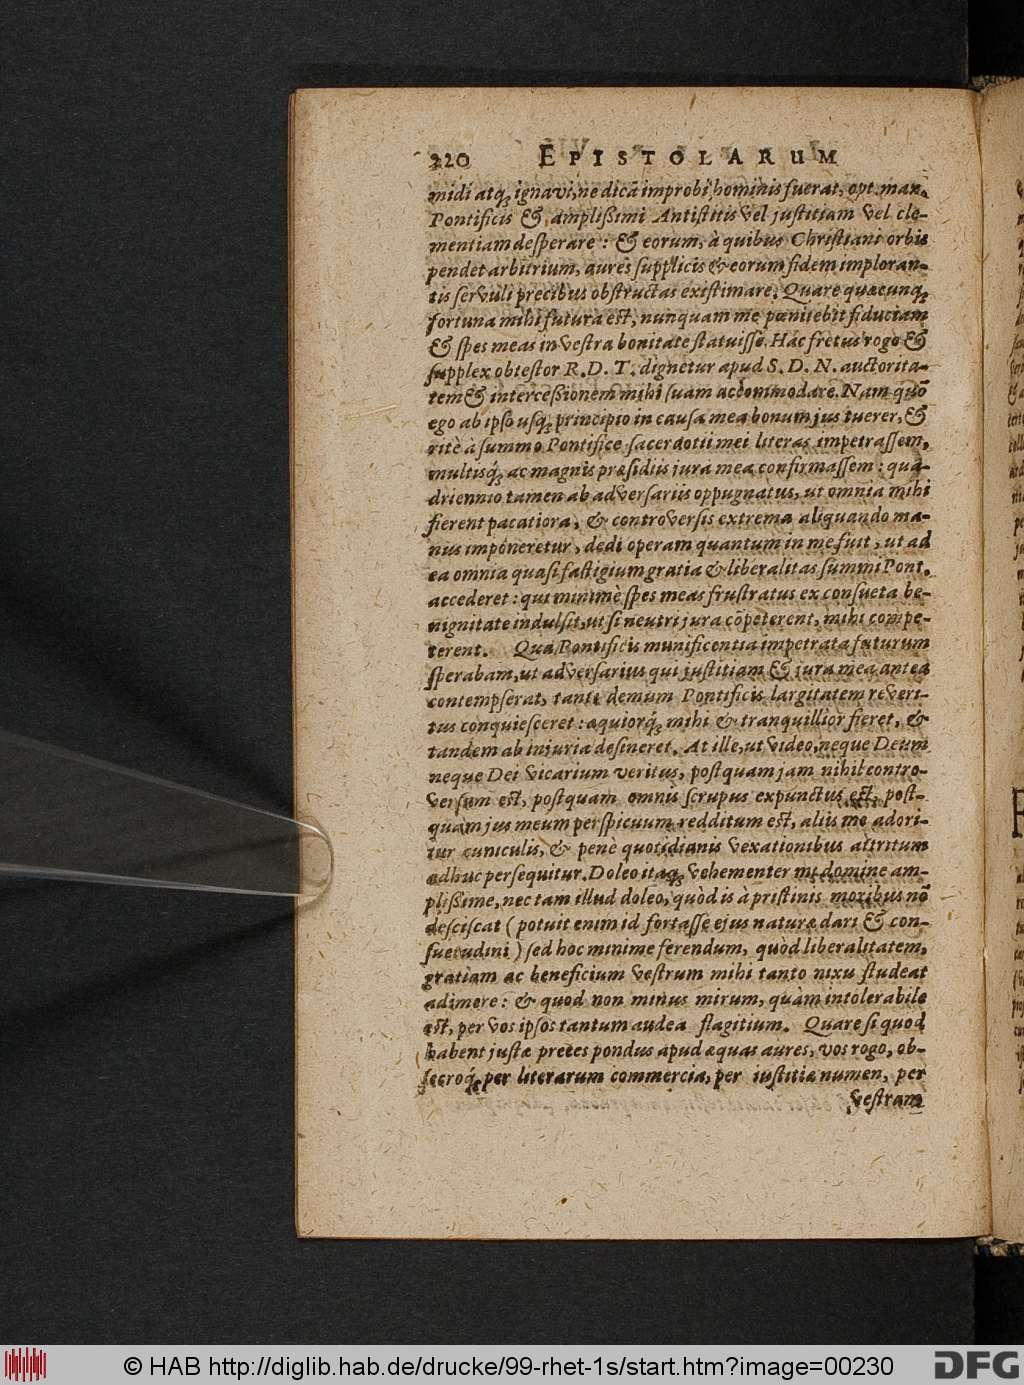 220 EPISTOLARUM
midi atq́; ignavi, ne dicã improbi hominis fuerat, opt. max.
Pontificis & amplißimi Antistitis vel justitiam vel cle-
mentiam desperare: & eorum, à quibus Christiani orbis
pendet arbitrium, aures supplicis & eorum fidem imploran-
tis servuli precibus obstructas existimare. Quare quæcunq;
fortuna mihi futura est, nunquam me pœnitebit fiduciam
& spes meas in vestra bonitate statuisse. Hac fretus rogo &
supplex obtestor R. D. T. dignetur apud S. D. N. auctorita-
tem & intercessionem mihi suam accommodare. Nam quõ
ego ab ipso usq; principio in causa mea bonum jus tuerer, &
ritè à summo Pontifice sacerdotii mei literas impetrassem,
multisq́; ac magnis præsidiis jura mea confirmassem: qua-
driennio tamen ab adversariis oppugnatus, ut omnia mihi
fierent pacatiora, & controversis extrema aliquando ma-
nus imponeretur, dedi operam quantum in me fuit, ut ad
ea omnia quasi fastigium gratia & liberalitas summi Pont.
accederet: qui minimè spes meas frustratus ex consueta be-
nignitate indulsit, ut si neutri jura cõpeterent, mihi compe-
terent. Qua Pontificis munificentia impetrata futurum
sperabam, ut adversarius qui justitiam & jura mea antea
contempserat, tanti demum Pontificis largitatem reveri-
tus conquiesceret: æquiorq́; mihi & tranquillior fieret, &
tandem ab injuria desineret. At ille, ut video, neque Deum
neque Dei Vicarium veritus, postquam jam nihil contro-
versum est, postquam omnis scrupus expunctus est, post-
quàm jus meum perspicuum redditum est, aliis me adori-
tur cuniculis, & penè quotidianis vexationibus attritum
adhuc persequitur. Doleo itaq; vehementer mi domine am-
plißime, nec tam illud doleo, quòd is à pristinis moribus nõ
desciscat (potuit enim id fortasse ejus naturæ dari & con-
suetudini) sed hoc minime ferendum, quòd liberalitatem,
gratiam ac beneficium vestrum mihi tanto nixu studeat
adimere: & quod non minus mirum, quàm intolerabile
est, per vos ipsos tantum audea flagitium. Quare si quod
habent justæ preces pondus apud æquas aures, vos rogo, ob-
secroq́; per literarum commercia, per justitiæ numen, per
vestram
© HAB http://diglib.hab.de/drucke/99-rhet-1s/start.htm?image=00230
DFG